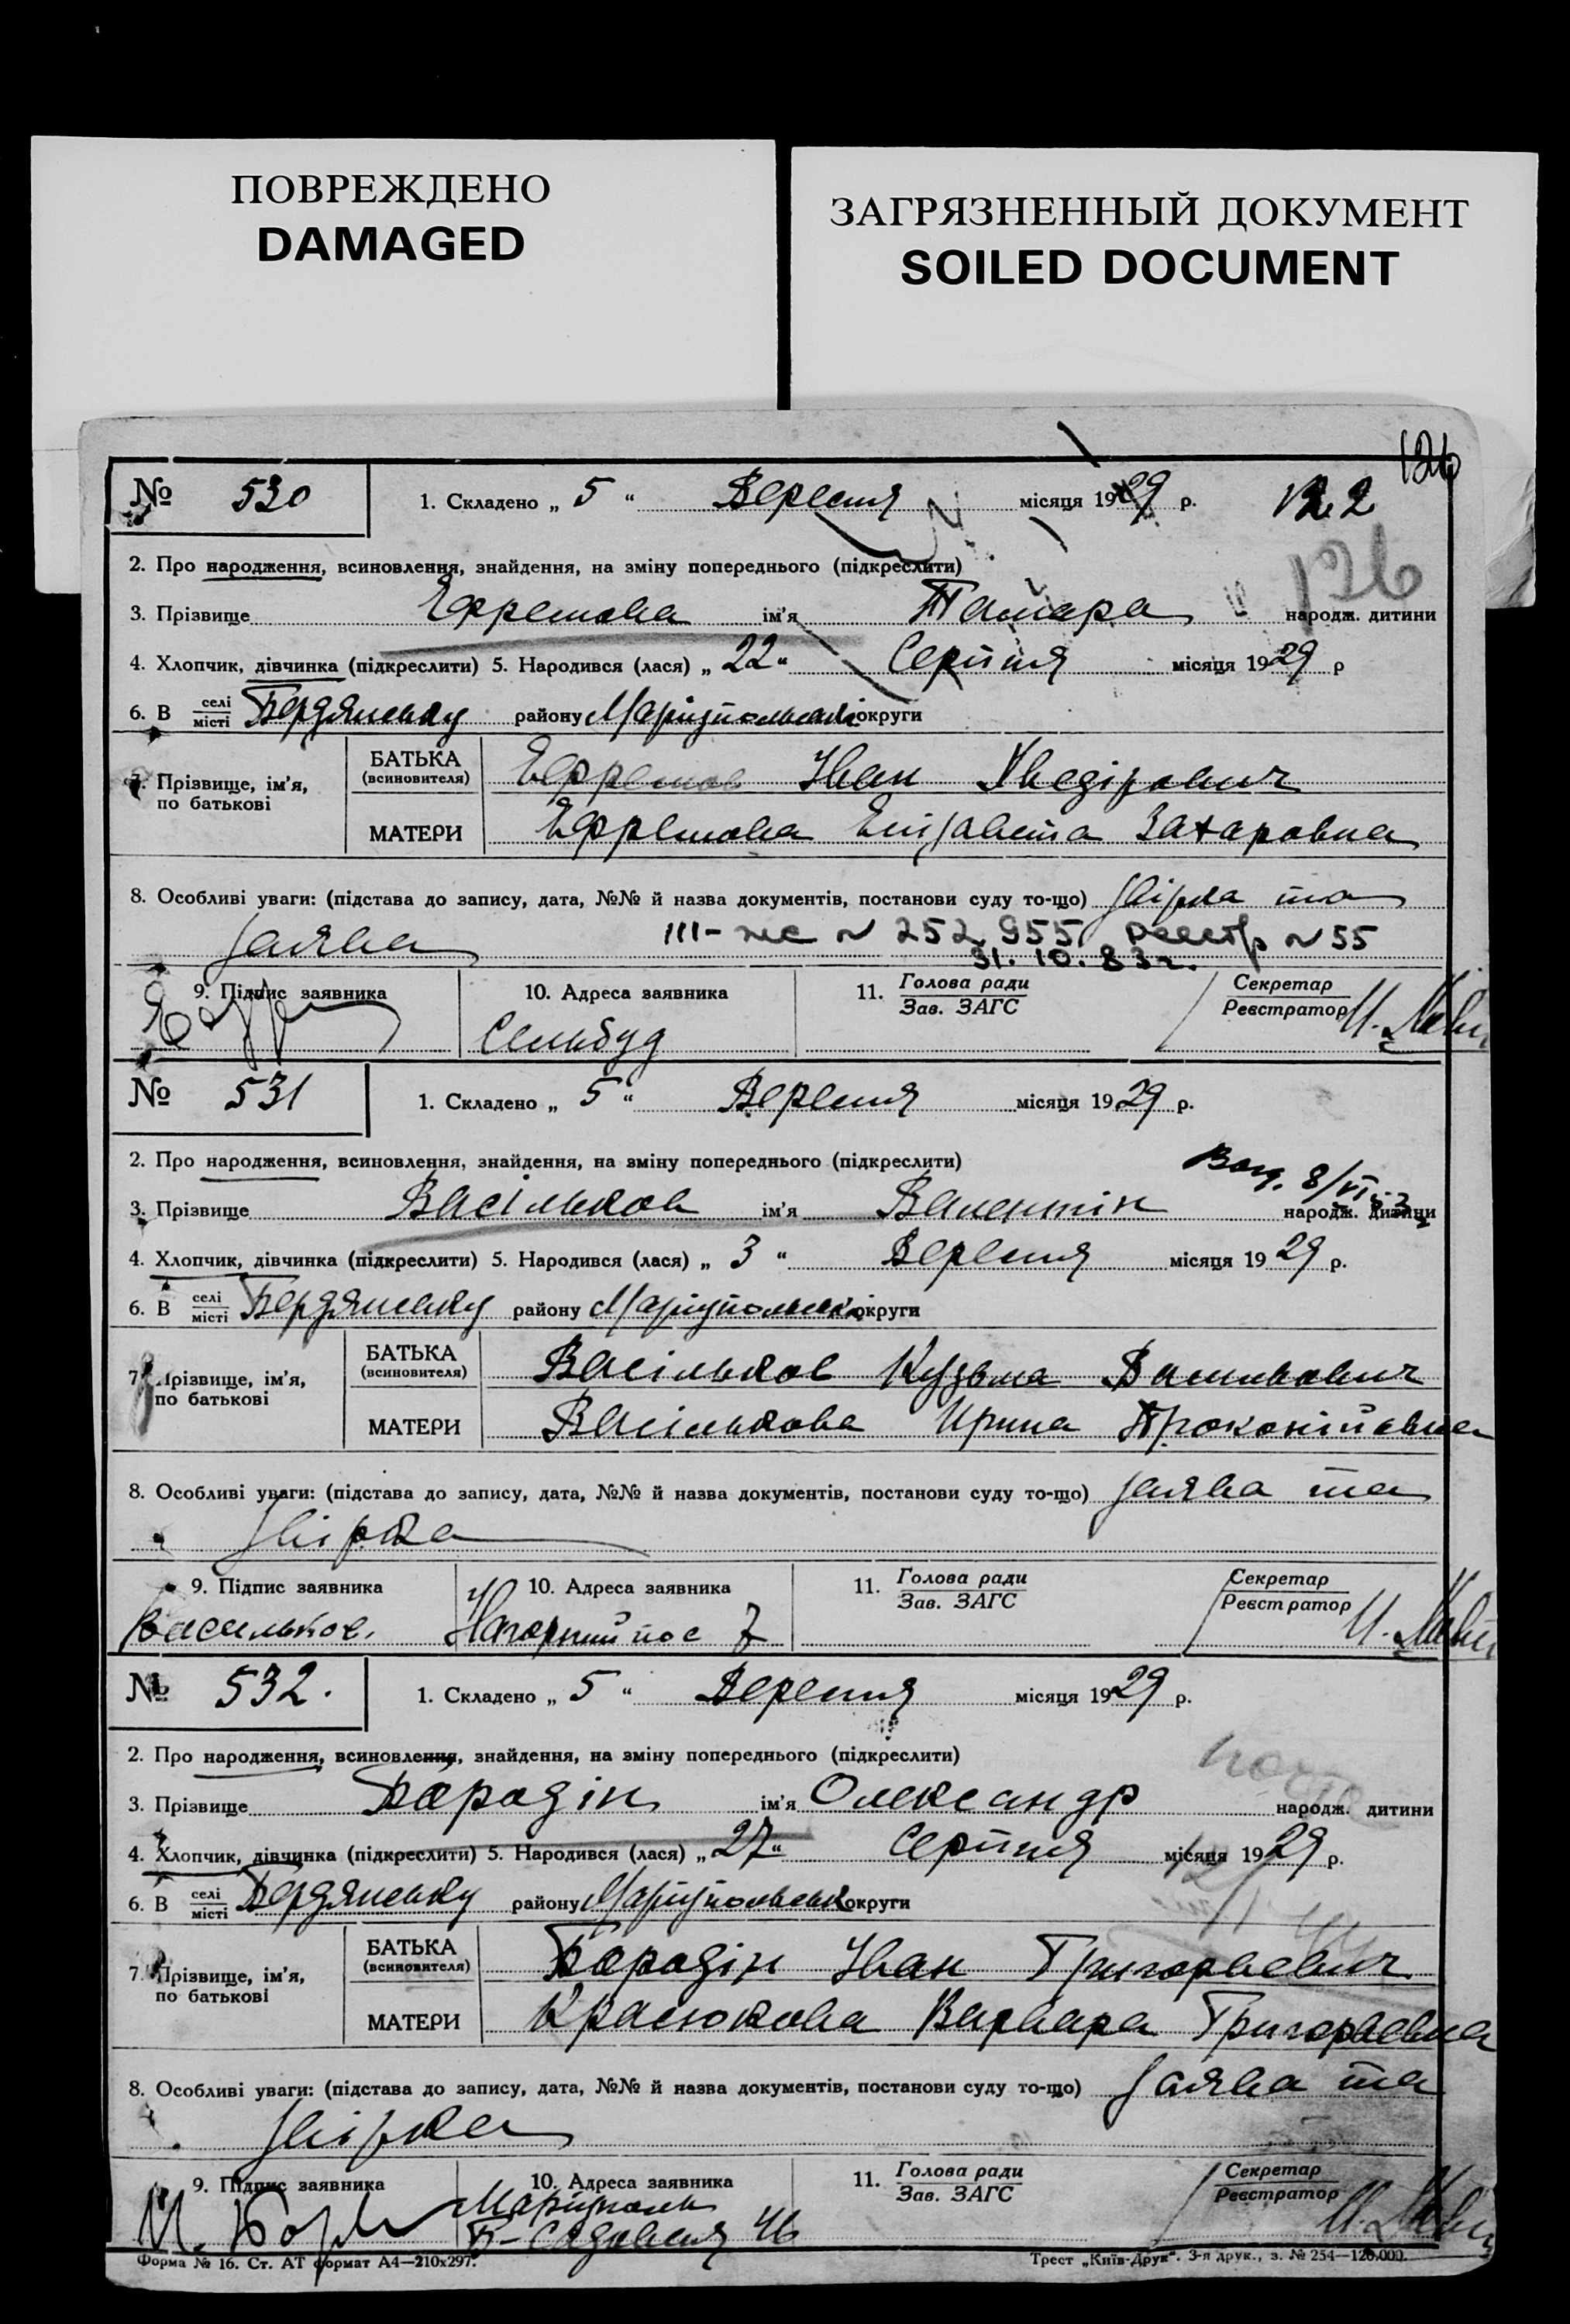 ПОВРЕЖДЕНО
DAMAGED
ЗАГРЯЗНЕННЫЙ ДОКУМЕНТ
SOILED DOCUMENT
126
№ 530 1. Складено „ 5 “ Вересня місяця 1929 р. 122
2. Про народження, всиновлення, знайдення, на зміну попереднього (підкреслити) 126
3. Прізвище Ефремова ім'я Тамара народж. дитини
4. Хлопчик, дівчинка (підкреслити) 5. Народився (лася) „ 22 “ Серпня місяця 1929 р
6. В селі місті Бердянську району Маріупольськ округи
7. Прізвище, ім'я, по батькові БАТЬКА (всиновителя) Ефремов Иван
МАТЕРИ Ефремова Елизавета Захаровна
8. Особливі уваги: (підстава до запису, дата, №№ й назва документів, постанови суду то-що) Звірка та
заява III-жс № 252955 реестр № 55
31.10.83г.
9. Підпис заявника 10. Адреса заявника 11. Голова ради Зав. ЗАГС Секретар Реєстратор
Сельбуд
№ 531 1. Складено „ 5 “ Вересня місяця 1929 р.
2. Про народження, всиновлення, знайдення, на зміну попереднього (підкреслити)
3. Прізвище Васільков ім'я Валентін народж. дитини
4. Хлопчик, дівчинка (підкреслити) 5. Народився (лася) „ 3 “ Вересня місяця 1929 р.
6. В селі місті Бердянську району Маріупольськ округи
7. Прізвище, ім'я, по батькові БАТЬКА (всиновителя) Васільков Кузьма
МАТЕРИ Васількова Ирина
8. Особливі уваги: (підстава до запису, дата, №№ й назва документів, постанови суду то-що) заява та
звірка
9. Підпис заявника 10. Адреса заявника 11. Голова ради Зав. ЗАГС Секретар Реєстратор
Васильков. Нагорный пос 7
№ 532. 1. Складено „ 5 “ Вересня місяця 1929 р.
2. Про народження, всиновлення, знайдення, на зміну попереднього (підкреслити)
3. Прізвище Бородін ім'я Олександр народж. дитини
4. Хлопчик, дівчинка (підкреслити) 5. Народився (лася) „ 27 “ Серпня місяця 1929 р.
6. В селі місті Бердянську району Маріупольськ округи
7. Прізвище, ім'я, по батькові БАТЬКА (всиновителя) Бородін Иван Григорьевич
МАТЕРИ Красюкова Варвара Григорьевна
8. Особливі уваги: (підстава до запису, дата, №№ й назва документів, постанови суду то-що) Заява та
звірка
9. Підпис заявника 10. Адреса заявника 11. Голова ради Зав. ЗАГС Секретар Реєстратор
Маріуполь
46
Форма № 16. Ст. АТ формат А4—210х297. Трест „Київ-Друк“. 3-я друк., з. № 254—120.000.